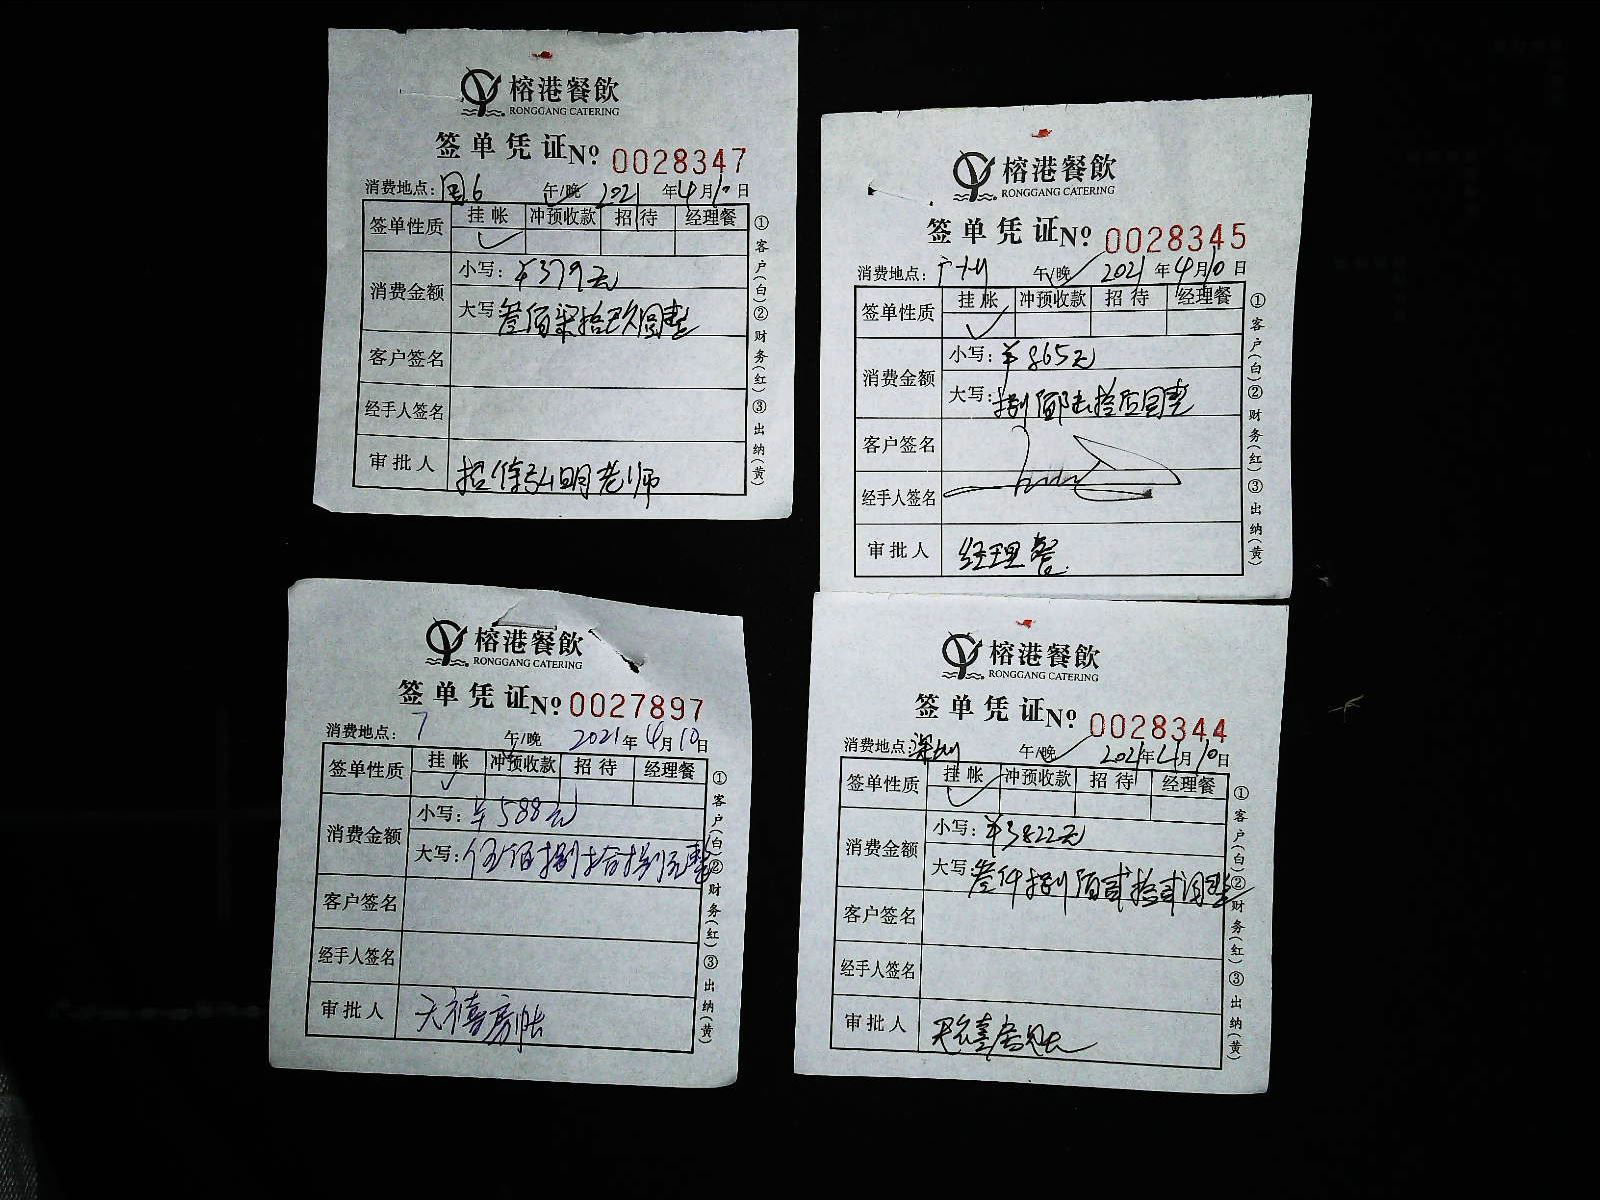 榕港餐飲
RONGGANG CATERING
签单凭证 № 0028347
消费地点: 国6 午/晚 2021年4月10日
签单性质 挂帐 冲预收款 招待 经理餐
✓
消费金额
小写: ¥379元
大写 叁佰柒拾玖圆整
客户签名
经手人签名
审批人 招待弘明老师
①客户(白)②财务(红)③出纳(黄)
榕港餐飲
RONGGANG CATERING
签单凭证 № 0028345
消费地点: 广州 午/晚 2021年4月10日
签单性质 挂帐 冲预收款 招待 经理餐
✓
消费金额
小写: ¥865元
大写: 捌佰陆拾伍圆整
客户签名
经手人签名
审批人 经理餐
①客户(白)②财务(红)③出纳(黄)
榕港餐飲
RONGGANG CATERING
签单凭证 № 0027897
消费地点: 7 午/晚 2021年4月10日
签单性质 挂帐 冲预收款 招待 经理餐
✓
消费金额
小写: ¥588元
大写: 伍佰捌拾捌元整
客户签名
经手人签名
审批人 天禧房帐
①客户(白)②财务(红)③出纳(黄)
榕港餐飲
RONGGANG CATERING
签单凭证 № 0028344
消费地点: 深圳 午/晚 2021年4月10日
签单性质 挂帐 冲预收款 招待 经理餐
✓
消费金额
小写: ¥3822元
大写: 叁仟捌佰贰拾贰圆整
客户签名
经手人签名
审批人
①客户(白)②财务(红)③出纳(黄)